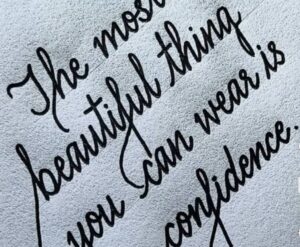 The most
beautiful thing
you can wear is
confidence.